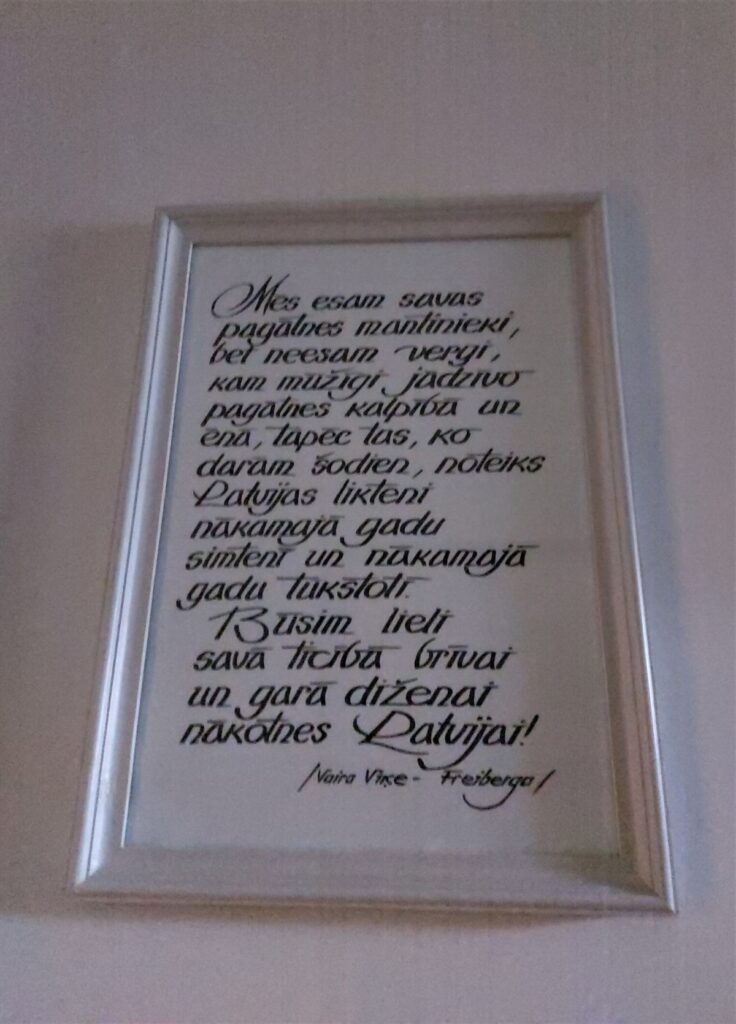 Mēs esam savas
pagātnes mantinieki,
bet neesam vergi,
kam mūžīgi jādzīvo
pagātnes kalpībā un
ēnā, tāpēc tas, ko
darām šodien, noteiks
Latvijas likteni
nākamajā gadu
simtenī un nākamajā
gadu tūkstotī.
Būsim lieli
savā ticībā brīvai
un garā diženai
nākotnes Latvijai!
/Vaira Vīķe - Freiberga/